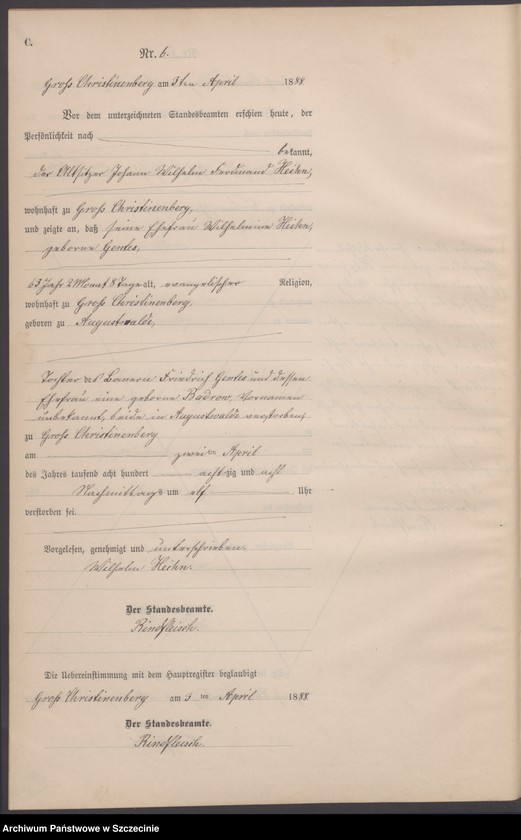 C.
Nr. 6.
Groß Christinenberg am 3ten April 1888
Vor dem unterzeichneten Standesbeamten erschien heute, der
Persönlichkeit nach
bekannt,
der Altsitzer Johann Wilhelm Ferdinand
wohnhaft zu Groß Christinenberg,
und zeigte an, daß seine Ehefrau Wilhelmine
geborne Gentes,
63 Jahr 2 Monat 8 Tage alt, evangelischer Religion,
wohnhaft zu Groß Christinenberg,
geboren zu Augustwalde,
Tochter des Bauern Friedrich Gentes und dessen
Ehefrau eine geborne Badrow, Vornamen
unbekannt, beide in Augustwalde verstorben,
zu Groß Christinenberg
am zweiten April
des Jahres tausend acht hundert achtzig und acht
Nachmittags um elf Uhr
verstorben sei.
Vorgelesen, genehmigt und unterschrieben.
Wilhelm
Der Standesbeamte.
Rindfleisch.
Die Uebereinstimmung mit dem Hauptregister beglaubigt
Groß Christinenberg am 3ten April 1888
Der Standesbeamte.
Rindfleisch.
Archiwum Państwowe w Szczecinie